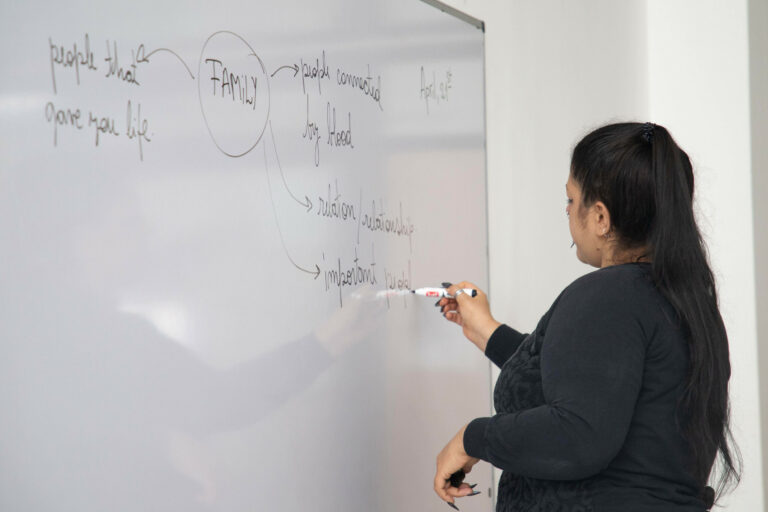 people that
gave you life.
FAMILY
people connected
by blood
April, 21st
relation/relationship.
important peopl